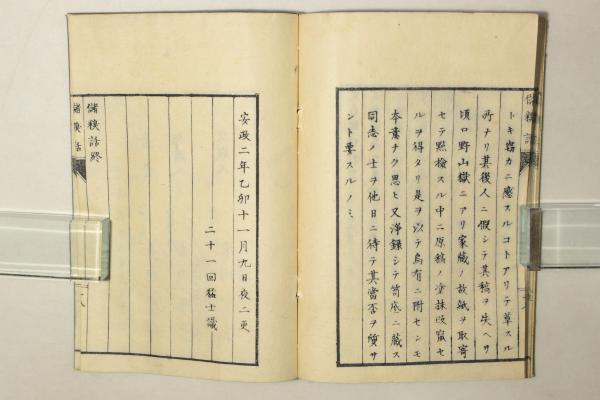 トキ窃カニ感スルコトアリテ草スル
所ナリ其後人ニ假シテ其稿ヲ失ヘリ
頃口野山獄ニアリ家蔵ノ故紙ヲ取寄
セテ點檢スル中ニ原稿ノ塗抹改竄セ
ルヲ得タリ是ヲ以テ烏有ニ附センモ
本意ナク思ヒ又浄録シテ筥底ニ蔵ス
同志ノ士ヲ他日ニ待テ其當否ヲ質サ
ント要スルノミ
安政二年乙卯十一月九日夜二更
二十一回猛士識
儲糗話終
儲糗話